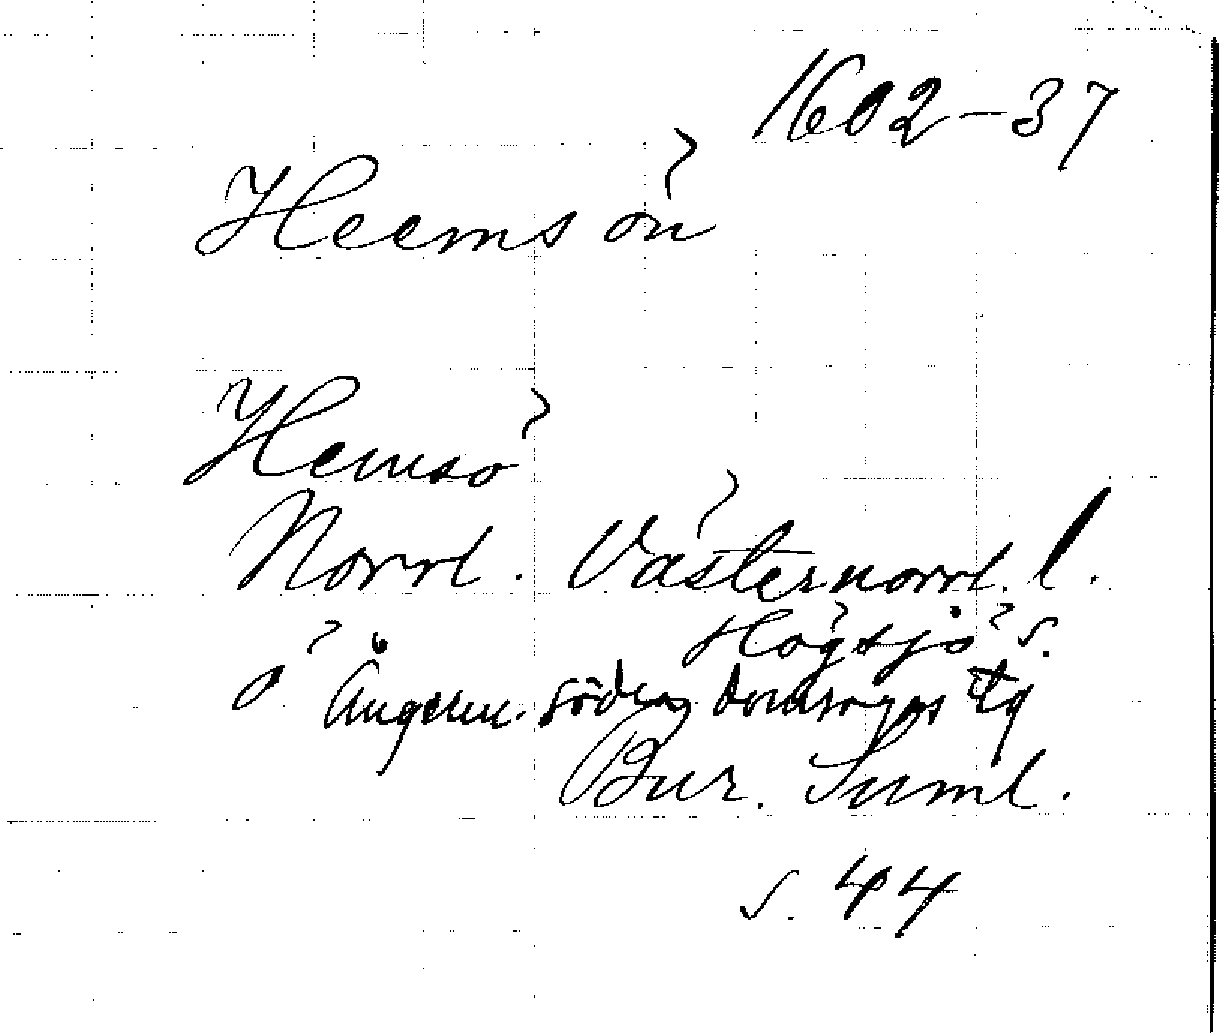 1602-37
Heemsön
Hemsö
Norrl. Västernorrl. l.
Högsjö s.
ö Ångerm. södra domsagas tg
Bur. Suml.
s. 44